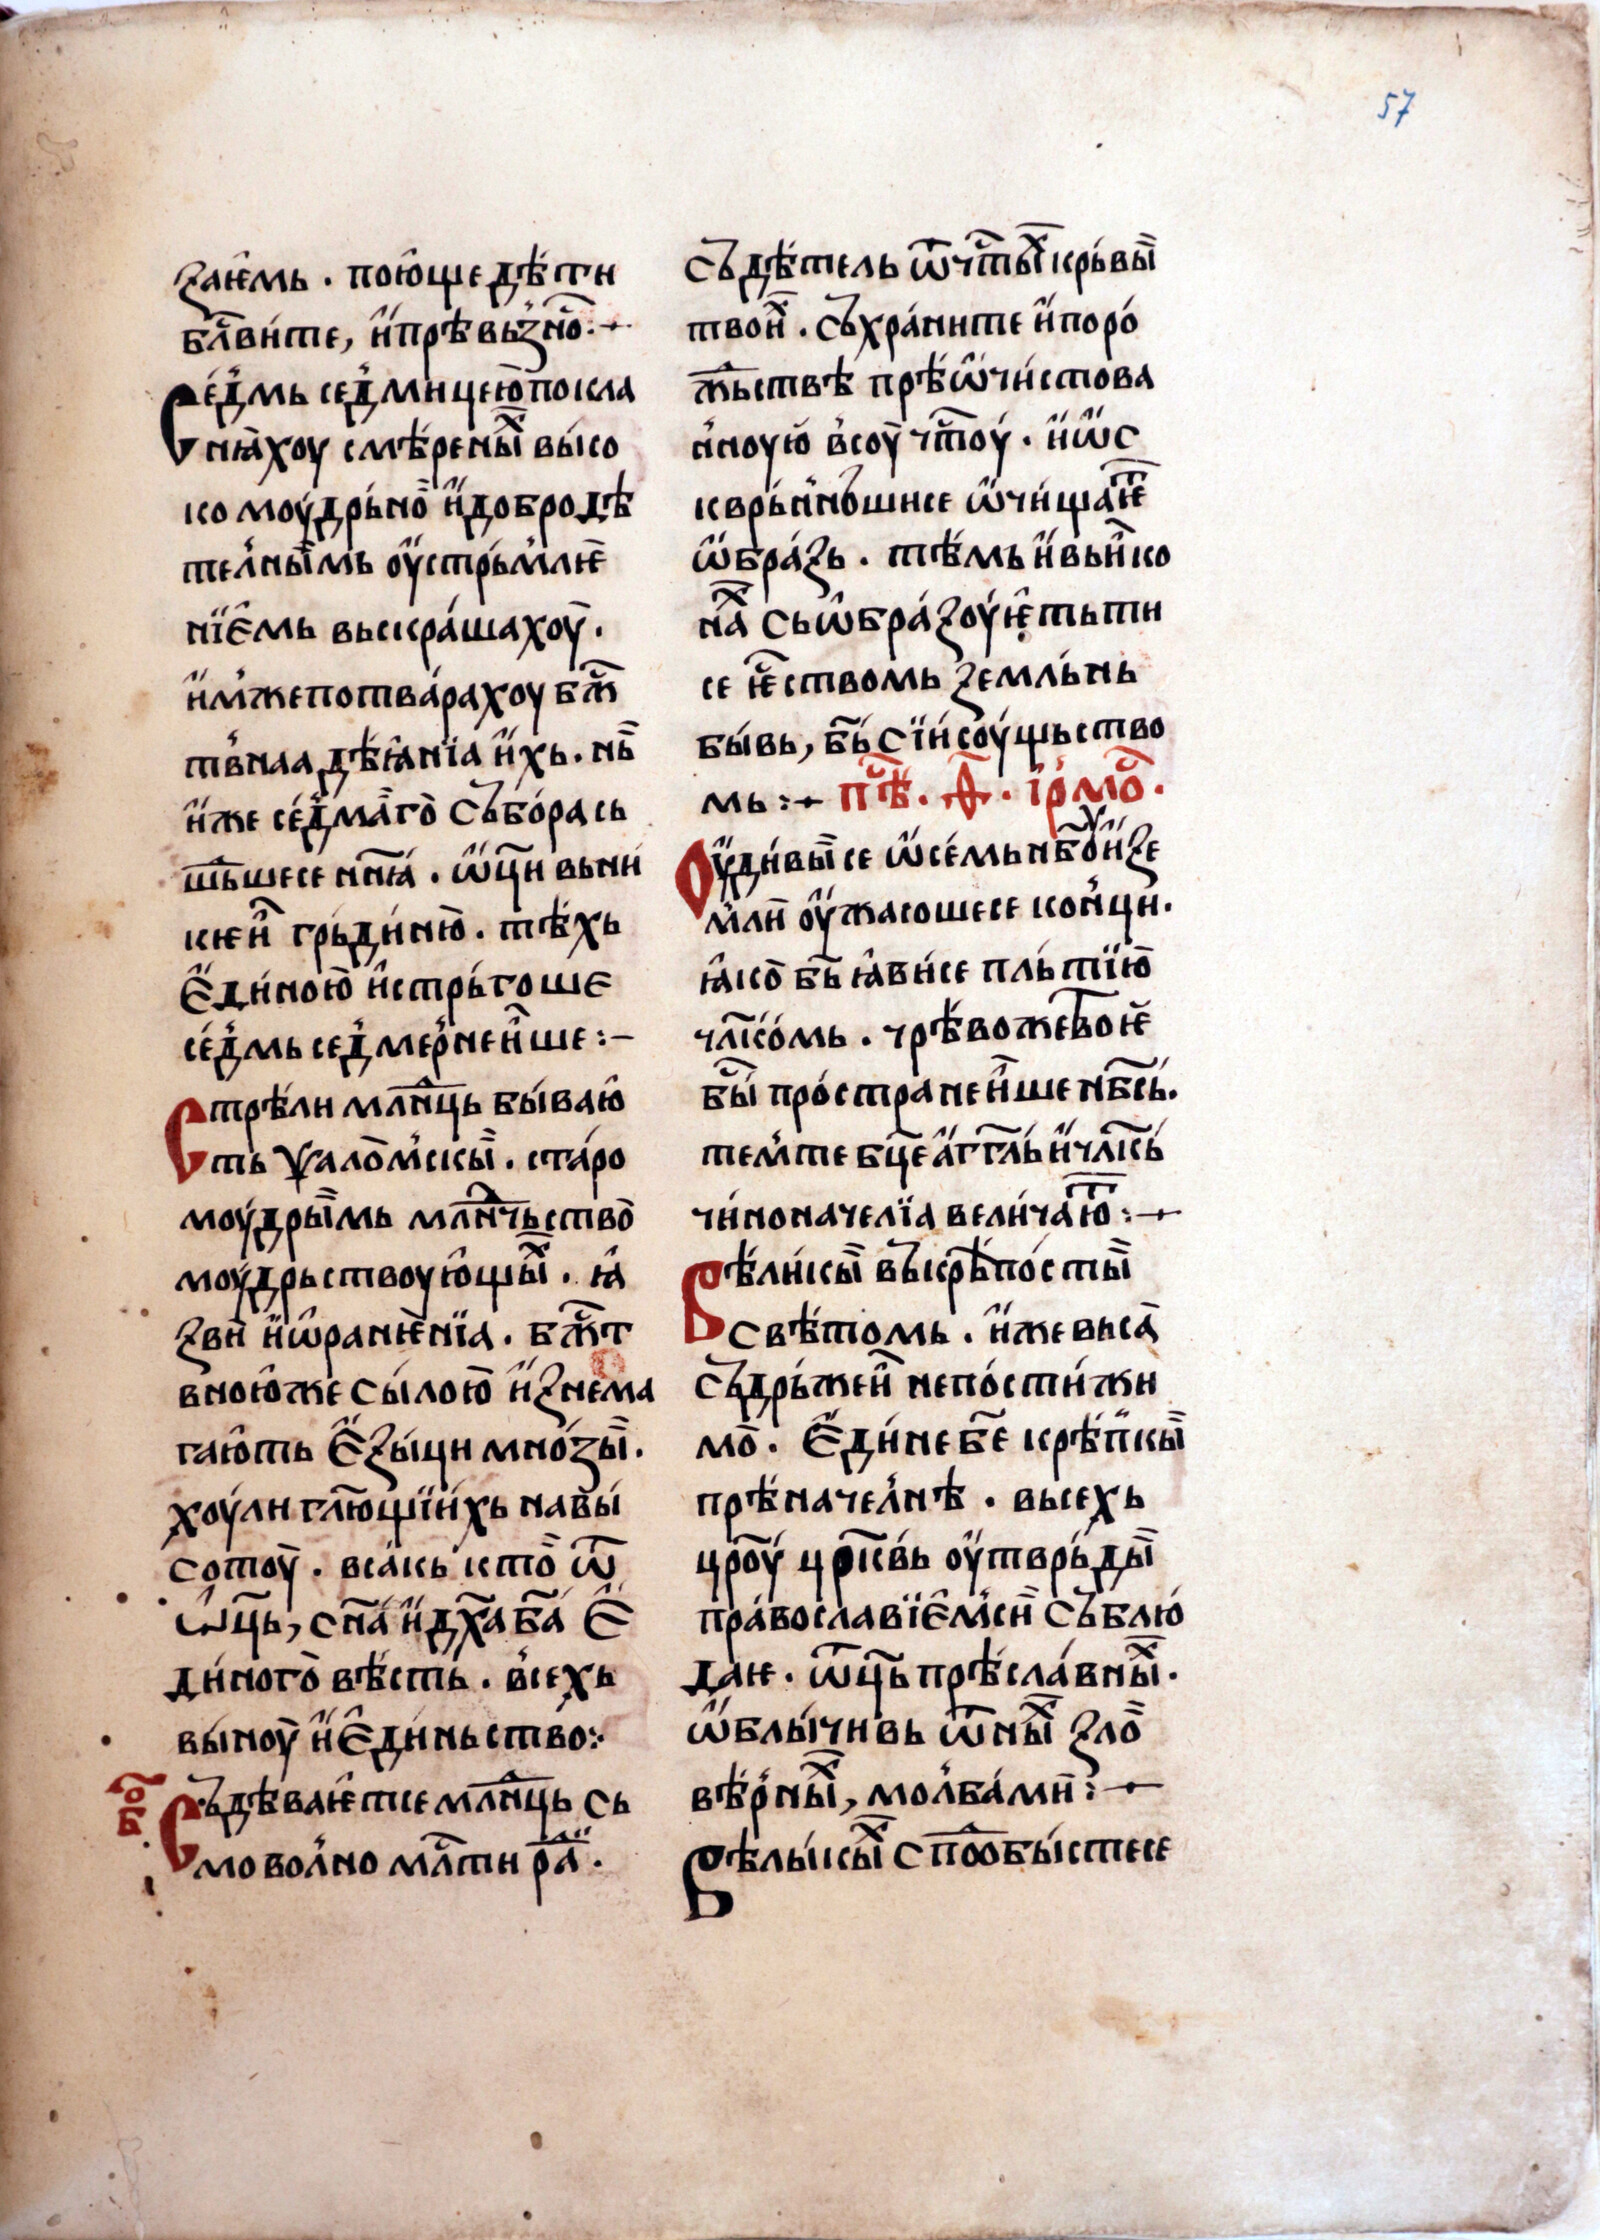 57
ꙁаѥ҆мь . пою҆ще дѣ́ти
бл҃ви́те, и҆ прѣвьꙁно҇ :~
Се́дмь се́дмицею̀ покла
нꙗ́хоу смѣ́рены̏х вы́со
комоу́дрьно̏ и҆ добродѣ
те́лныимь оу҆стрьмлѥ
нїе҆мь вьскра́шахоу̀ .
и҆мже потва́рахоу бж҇
твнаа дѣꙗ҆нїа и҆хь . нь̏
и҆же се́дмаго̀ събо́ра сь
шьше се нн҃ꙗ . ѡ҆ц҃и вьни
кѥи̏ грьди́ню̀ . тѣ́хь
Е҆ди́ною̀ и҆стрьгоше
се́дмь седмерне́ише :~
Стрѣ́ли мл҃нць бы́ваю҆
ть ѱало́мскы̏ . ста́ро
моу́дрыимь мл҃нчьство̀
моу́дрьствоую҆щы̏х . ꙗ҆
ꙁви̏ и҆ ѡ҆ранѥ́нїа . бж҇т
вною҆ же сы́лою̀ и҆ꙁнема
гаю҆ть Е҆ꙁы́ци мно́ꙁы̏ .
хоу́ли гл҃ющїи́хь на вы́
сотоу̀ . вса́кь кто̏ ѿ
Ѡ҆ц҃ь, сн҃а и҆ дх҃а ба҃ Е҆
ди́ного̀ вѣ́сть . все́хь
вы́ноу̀ и҆ Е҆ди́ньство :·
бо҇
Съдѣваѥ҆т се мл҃нць сь
мово́лно мл҇ти ра̏ .
съдѣ́тель ѿ чт҇ы́х крьвы̏
твои̏х . съхра́ните и҆ поро́
жьствѣ прѣ́ѡ҆чи́стова
нною҆ всоу̀ чт҇оу . и҆ ѡ҆с
кврьнньши се ѡ҆чища́ѥт
ѡ҆бра́ꙁь . тѣ́мь и҆ вьи̏ко
на̏х сьѡ҆бра́ꙁоуѥ҆ть ти
се ѥс҇твомь ꙁемльнь
бы́вь, бь҃ сїи соу́щьство
мь :~ пѣ҇ . ѳ҃ . і҆рмо҇ .
Оу҆ди́вы̏ се ѡ҆ се́мь нб҃о и҆ ꙁе
мли̏ оу҆жасоше се ко́нци .
ꙗ҆ко̀ бь҃ ꙗ҆ви́ се пльтїю̀
чл҃ко́мь . чрѣ́во же твоѥ
бы҇ простране́ише нб҃сь .
те́мте бц҃е а҆ггл҃ь и҆ чл҃кь
чи́ноначелїа вели́чают :~
Вѣли́кы̏ въ крѣ́посты̏
Свѣ́томь . и҆же вьса̀
съдрьжеи̏ непо́сти́жи
мо̀ . Е҆ди́не бе҃ крѣ́пкы̏
прѣ́наче́лнѣ . высехь
цр҃оу́ цр҃квь оу҆тврьды̏
пра́вославїе҆м си̏ съблю
даѥ . ѿц҃ь прѣ́сла́вны̏х .
ѡ҆блы́чивь ѿны̏х ꙁло̏
вѣ́рны̏х, мо́лба́ми̏ :~
Вѣлы́кы̏х спо҇бы́сте се